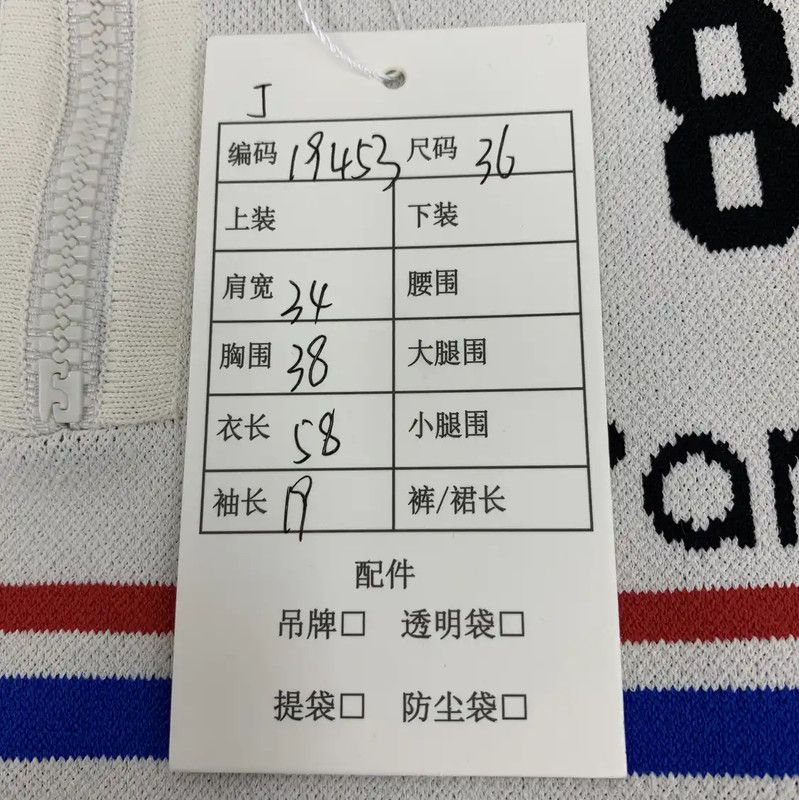 J
编码 19453 尺码 36
上装 下装
肩宽 34 腰围
胸围 38 大腿围
衣长 58 小腿围
袖长 19 裤/裙长
配件
吊牌□ 透明袋□
提袋□ 防尘袋□
8
ran